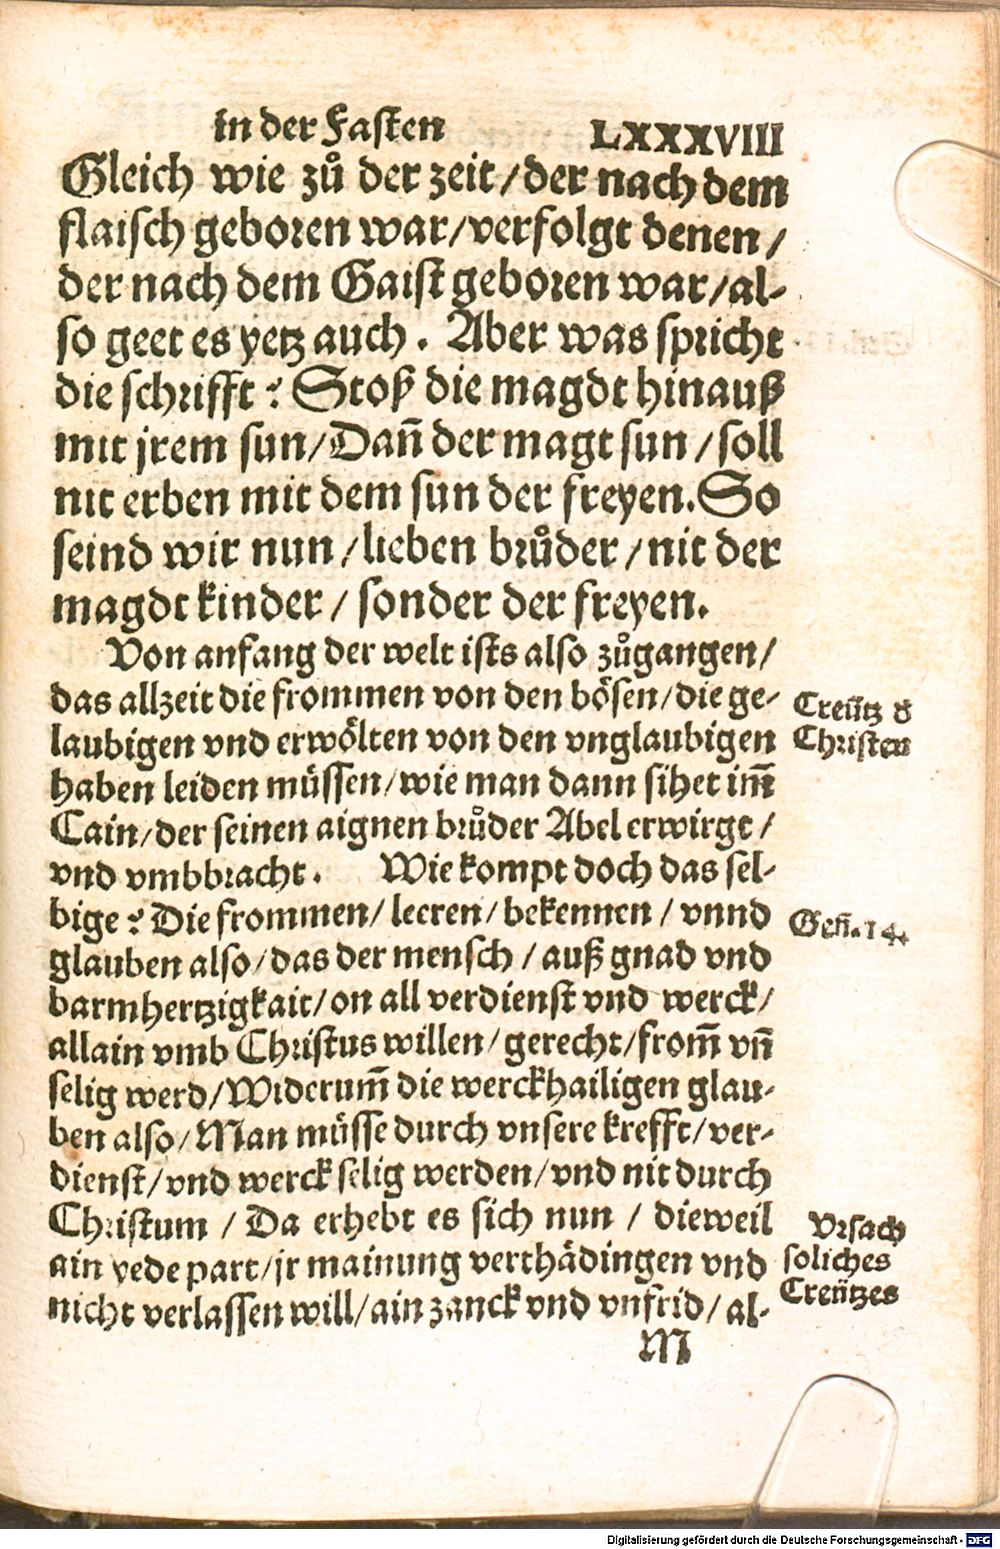 in der Fasten LXXXVIII
Gleich wie zů der zeit/der nach dem
flaisch geboren war/verfolgt denen/
der nach dem Gaist geboren war/al-
so geet es yetz auch. Aber was spricht
die schrifft? Stoß die magdt hinauß
mit jrem sun/Dañ der magt sun/soll
nit erben mit dem sun der freyen. So
seind wir nun/lieben brůder/nit der
magdt kinder/sonder der freyen.
Von anfang der welt ists also zůgangen/
das allzeit die frommen von den bösen/die ge-
laubigen vnd erwölten von den vnglaubigen
haben leiden müssen/wie man dann sihet im̃
Cain/der seinen aignen brůder Abel erwirgt/
vnd vmbbracht. Wie kompt doch das sel-
bige? Die frommen/leeren/bekennen/vnnd
glauben also/das der mensch/auß gnad vnd
barmhertzigkait/on all verdienst vnd werck/
allain vmb Christus willen/gerecht/from̃ vñ
selig werd/Widerum̃ die werckhailigen glau-
ben also/Man müsse durch vnsere krefft/ver-
dienst/vnd werck selig werden/vnd nit durch
Christum/Da erhebt es sich nun/dieweil
ain yede part/jr mainung verthädingen vnd
nicht verlassen will/ain zanck vnd vnfrid/al-
M
Creütz d̕
Christen
Geñ.14.
Vrsach
soliches
Creützes
Digitalisierung gefördert durch die Deutsche Forschungsgemeinschaft - DFG